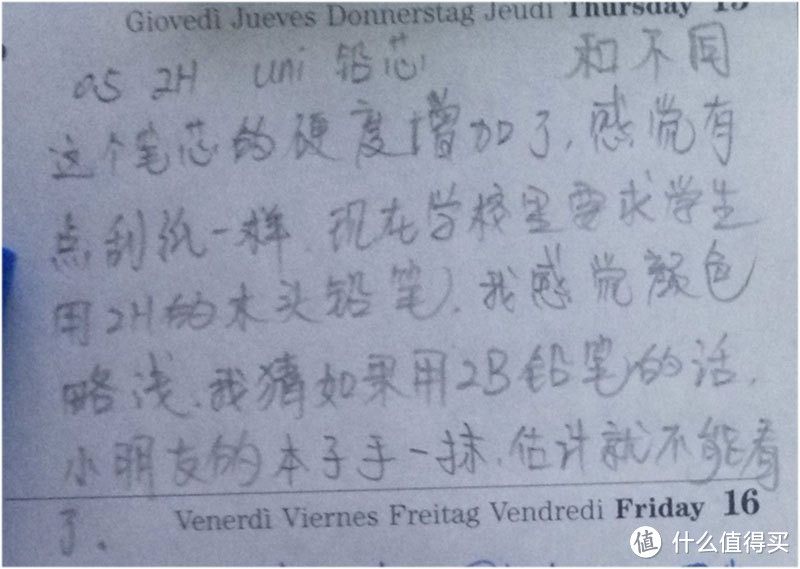 Giovedì Jueves Donnerstag Jeudi Thursday 15
05 2H uni 铅芯 和不同
这个笔芯的硬度增加了,感觉有
点刮纸一样.现在学校里要求学生
用2H的木头铅笔.我感觉颜色
略浅.我猜如果用2B铅笔的话,
小朋友的本子手一抹.估计就不能看
了。
Venerdì Viernes Freitag Vendredi Friday 16
值 什么值得买